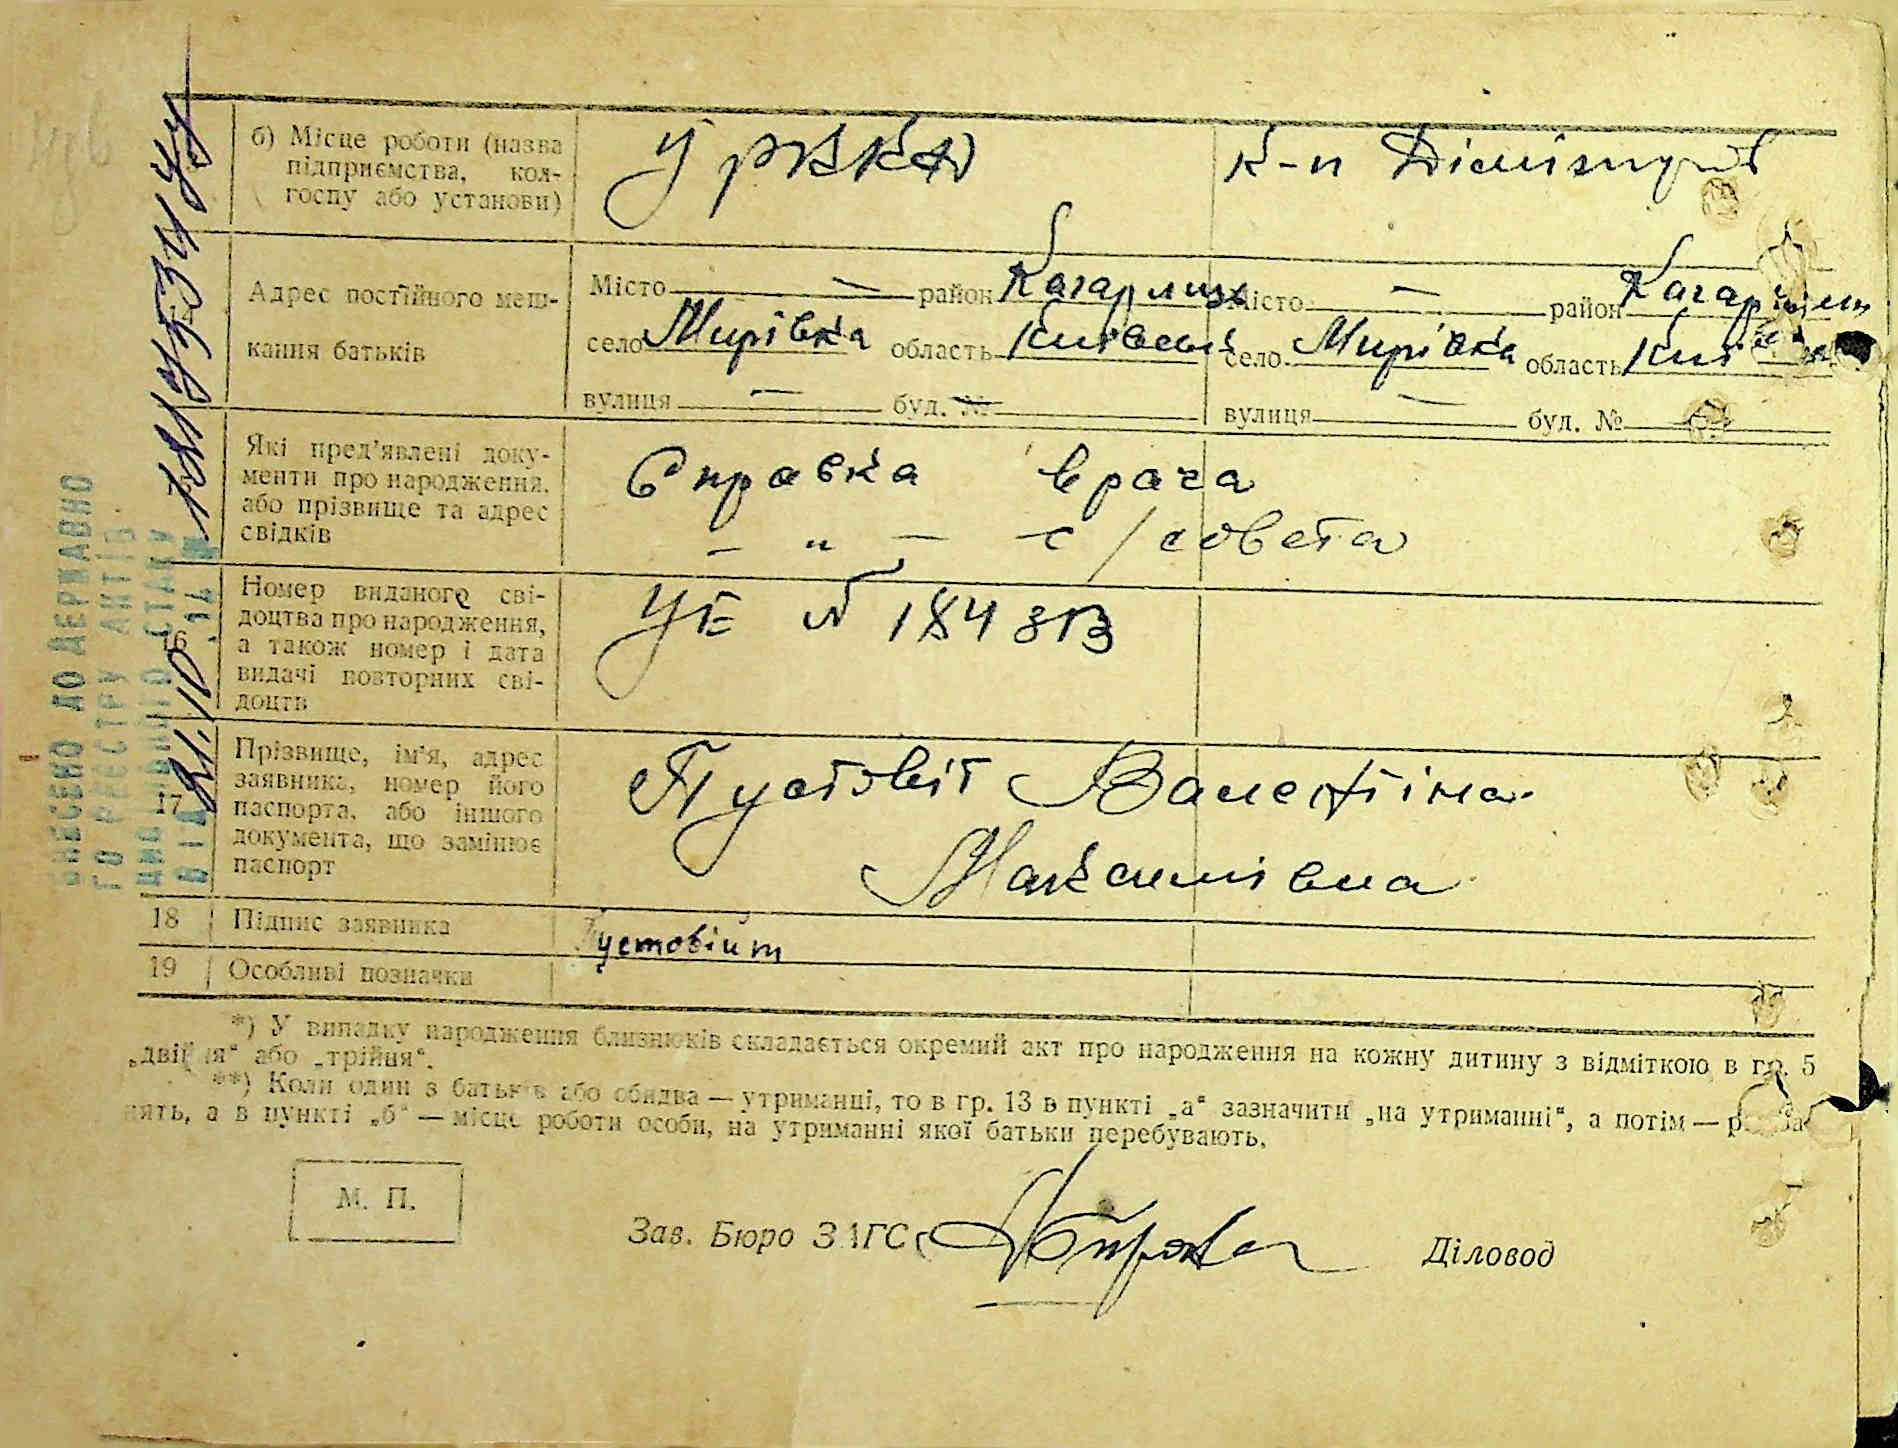 б) Місце роботи (назва
підприємства, кол-
госпу або установи)
У РККА
К-п Дімітров
Адрес постійного меш-
кання батьків
Місто — район Кагарлик
село Мирівка область Київськ
вулиця — буд. № —
Місто — район Кагарлик
село Мирівка область Київ
вулиця — буд. №
Які пред'явлені доку-
менти про народження,
або прізвище та адрес
свідків
Справка врача
— „ — с/совета
16
Номер виданого сві-
доцтва про народження,
а також номер і дата
видачі повторних сві-
доцтв
УЕ № 184313
17
Прізвище, ім'я, адрес
заявника, номер його
паспорта, або іншого
документа, що замінює
паспорт
Пустовіт Валентіна
Максимівна
18 Підпис заявника
Пустовіит
19 Особливі позначки
*) У випадку народження близнюків складається окремий акт про народження на кожну дитину з відміткою в гр. 5
„двійня“ або „трійня“.
**) Коли один з батьків або обидва — утриманці, то в гр. 13 в пункті „а“ зазначити „на утриманні“, а потім —
нять, а в пункті „б“ — місце роботи особи, на утриманні якої батьки перебувають.
М. П.
Зав. Бюро ЗАГС
Діловод
ВНЕСЕНО ДО ДЕРЖАВНО
ГО РЕЄСТРУ АКТІВ
ЦИВІЛЬНОГО СТАНУ
ВІД 21.10 .14 №